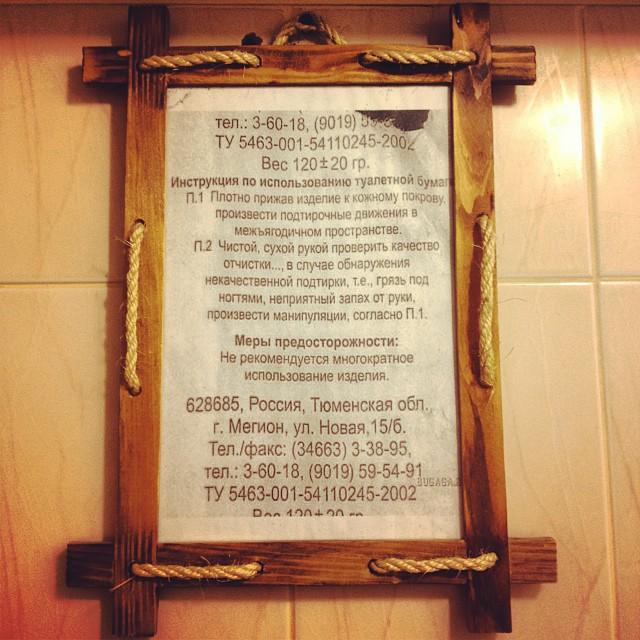 тел.: 3-60-18, (9019)
ТУ 5463-001-54110245-2002
Вес 120±20 гр.
Инструкция по использованию туалетной бумаг
П.1 Плотно прижав изделие к кожному покрову,
произвести подтирочные движения в
межъягодичном пространстве.
П.2 Чистой, сухой рукой проверить качество
отчистки..., в случае обнаружения
некачественной подтирки, т.е., грязь под
ногтями, неприятный запах от руки,
произвести манипуляции, согласно П.1.
Меры предосторожности:
Не рекомендуется многократное
использование изделия.
628685, Россия, Тюменская обл.,
г. Мегион, ул. Новая,15/б.
Тел./факс: (34663) 3-38-95,
тел.: 3-60-18, (9019) 59-54-91
ТУ 5463-001-54110245-2002
Вес 120±20 гр.